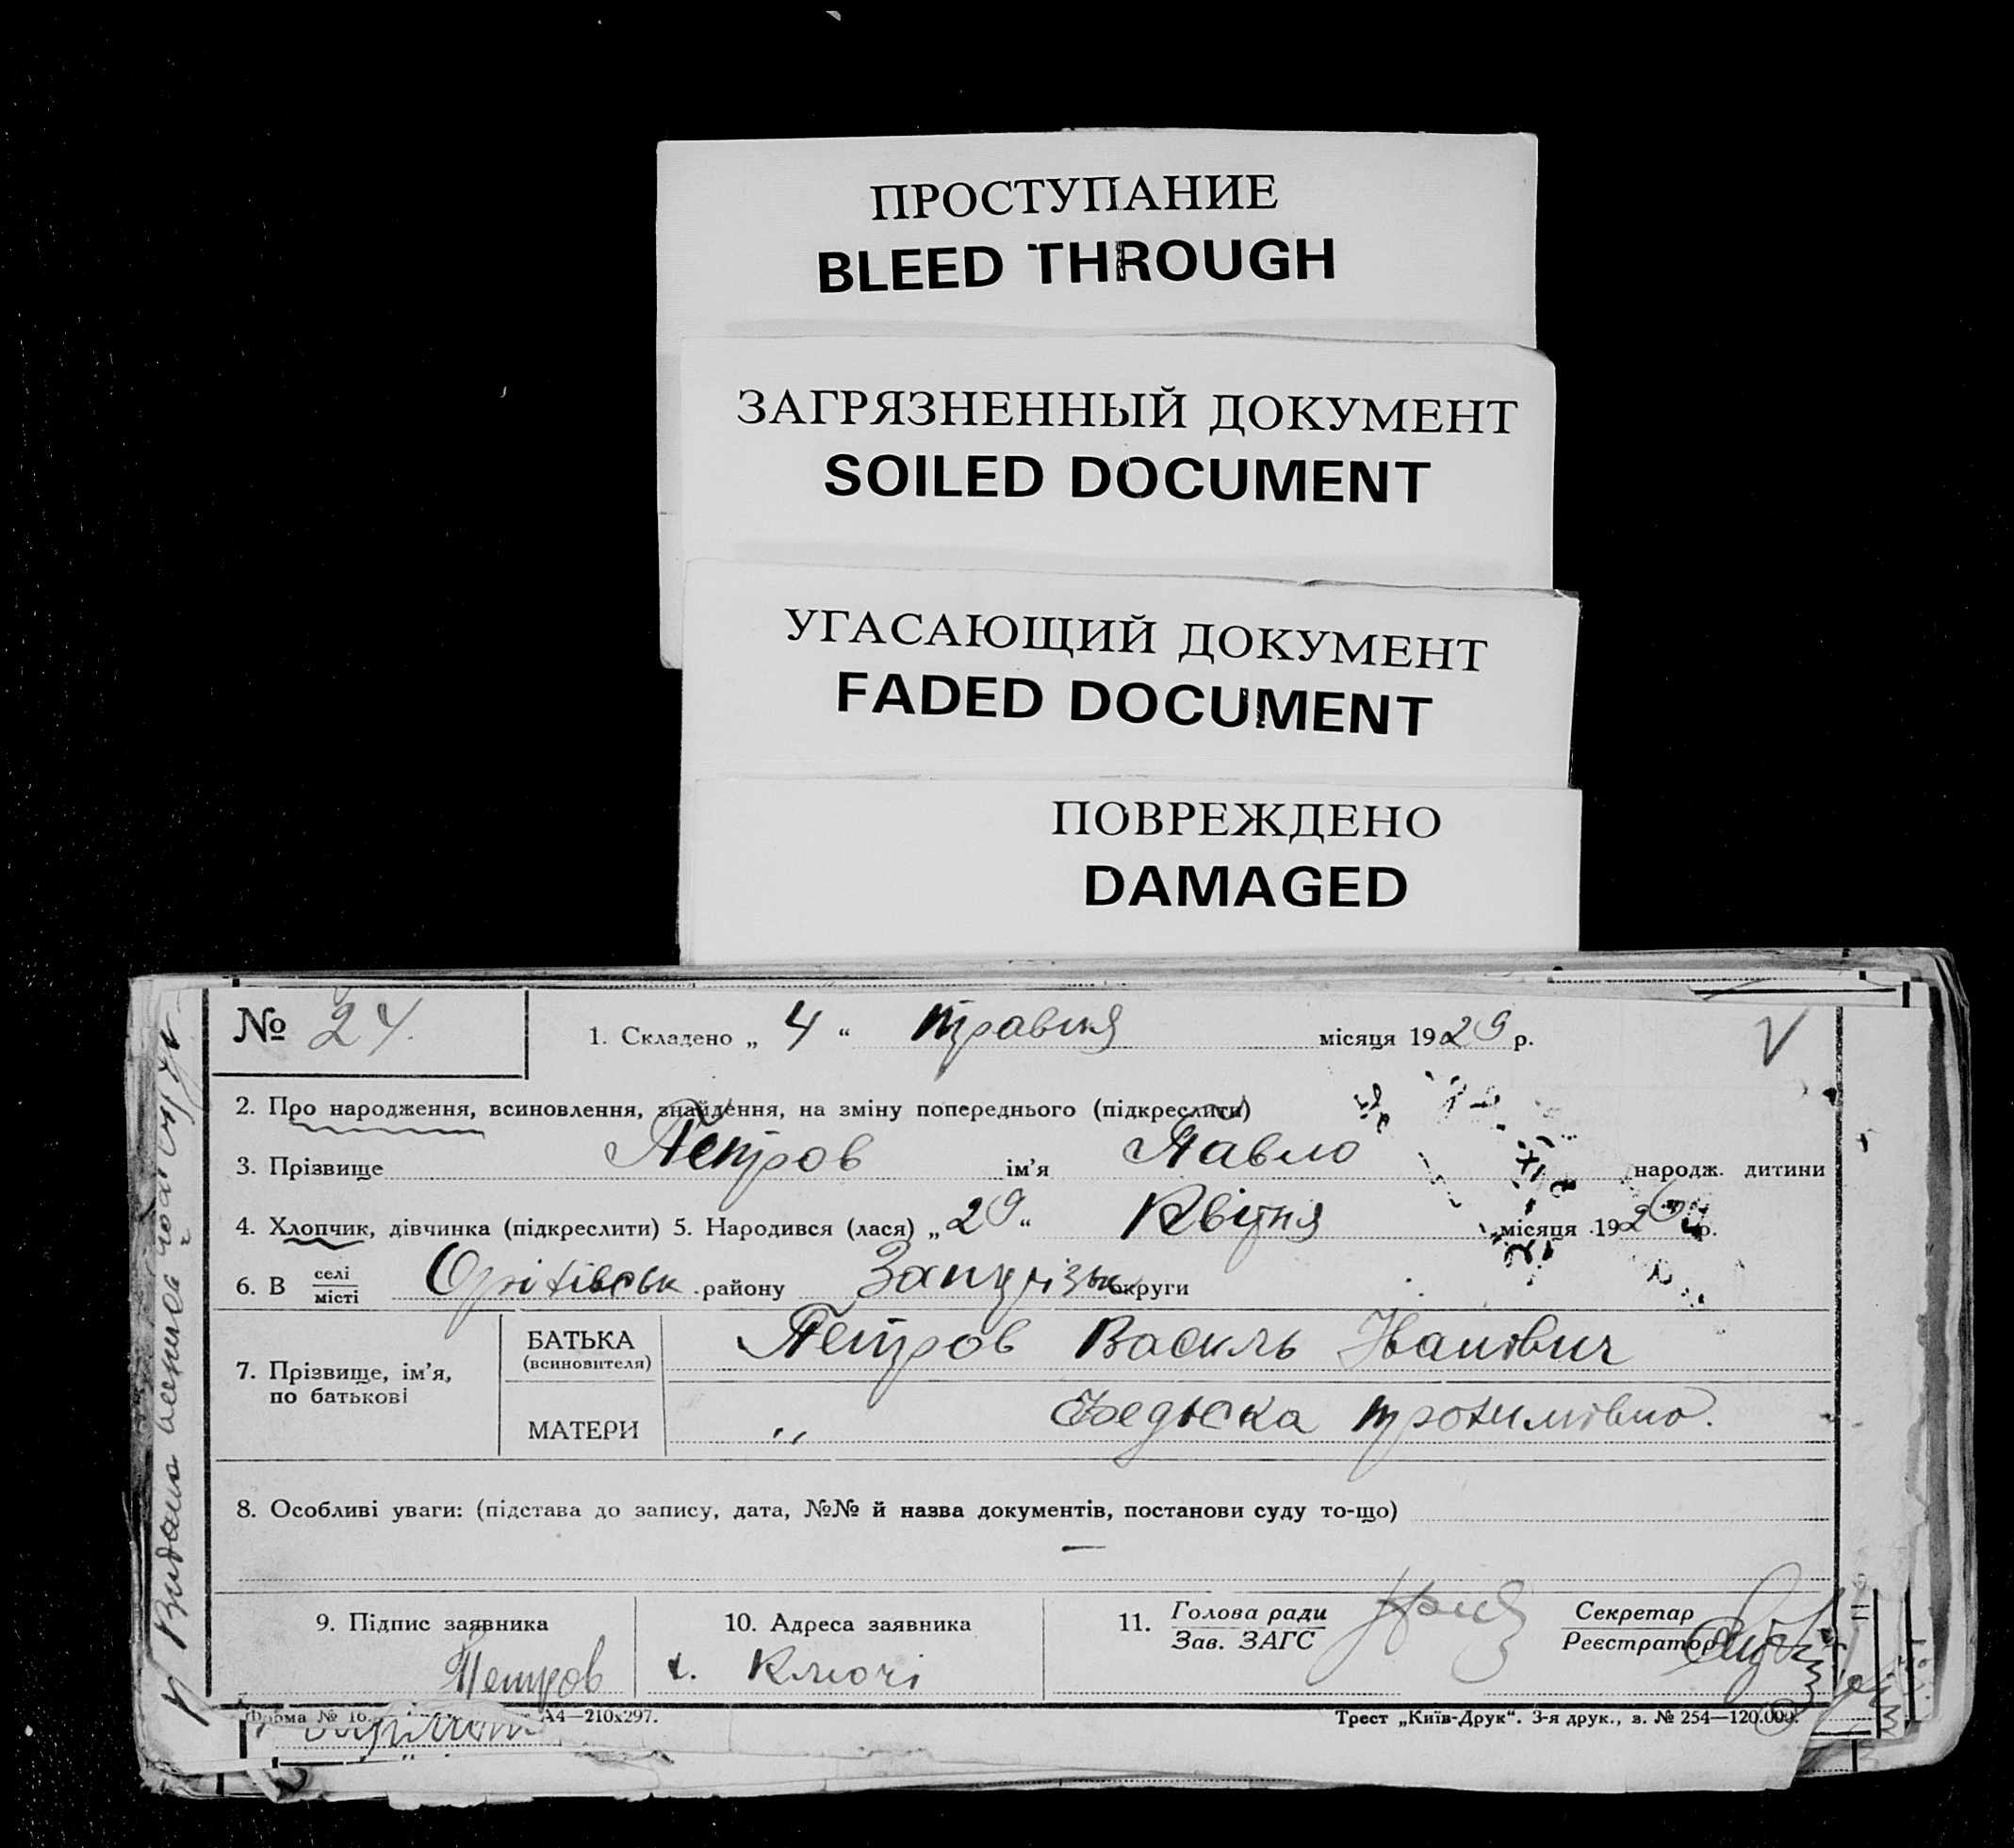 ПРОСТУПАНИЕ
BLEED THROUGH
ЗАГРЯЗНЕННЫЙ ДОКУМЕНТ
SOILED DOCUMENT
УГАСАЮЩИЙ ДОКУМЕНТ
FADED DOCUMENT
ПОВРЕЖДЕНО
DAMAGED
№ 24. 1. Складено „ 4 “ травня місяця 1929 р.
2. Про народження, всиновлення, знайдення, на зміну попереднього (підкреслити)
3. Прізвище Петров ім'я Павло народж. дитини
4. Хлопчик, дівчинка (підкреслити) 5. Народився (лася) „ 29 “ Квітня місяця 1929 р.
6. В селі
місті Оріхівськ району Запорізьк округи
7. Прізвище, ім'я,
по батькові
БАТЬКА
(всиновителя) Петров Василь Іванович
МАТЕРИ „ Федоска
8. Особливі уваги: (підстава до запису, дата, №№ й назва документів, постанови суду то-що)
—
9. Підпис заявника
Петров
10. Адреса заявника
х. Ключі
11. Голова ради
Зав. ЗАГС
Секретар
Реєстратор
Форма № 16. А4—210х297.
Трест „Київ-Друк“. 3-я друк., з. № 254—120.000.
Видана